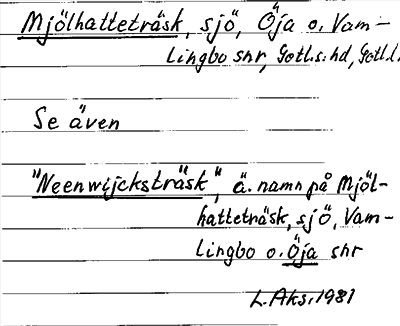 Mjölhatteträsk, sjö, Öja o. Vam-
lingbo snr, Gotl.s:hd, Gotl.l.
Se även
"Neenwijcksträsk", ä. namn på Mjöl-
hatteträsk, sjö, Vam-
lingbo o. Öja snr
L. Aks. 1981